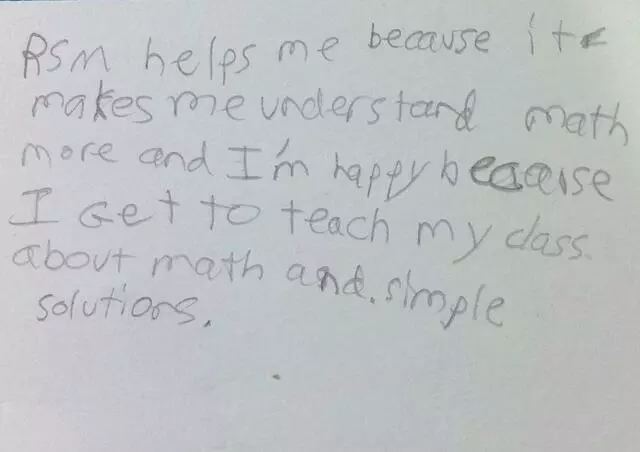 RSM helps me because it
makes me understand math
more and I'm happy because
I Get to teach my class.
about math and. simple
solutions.